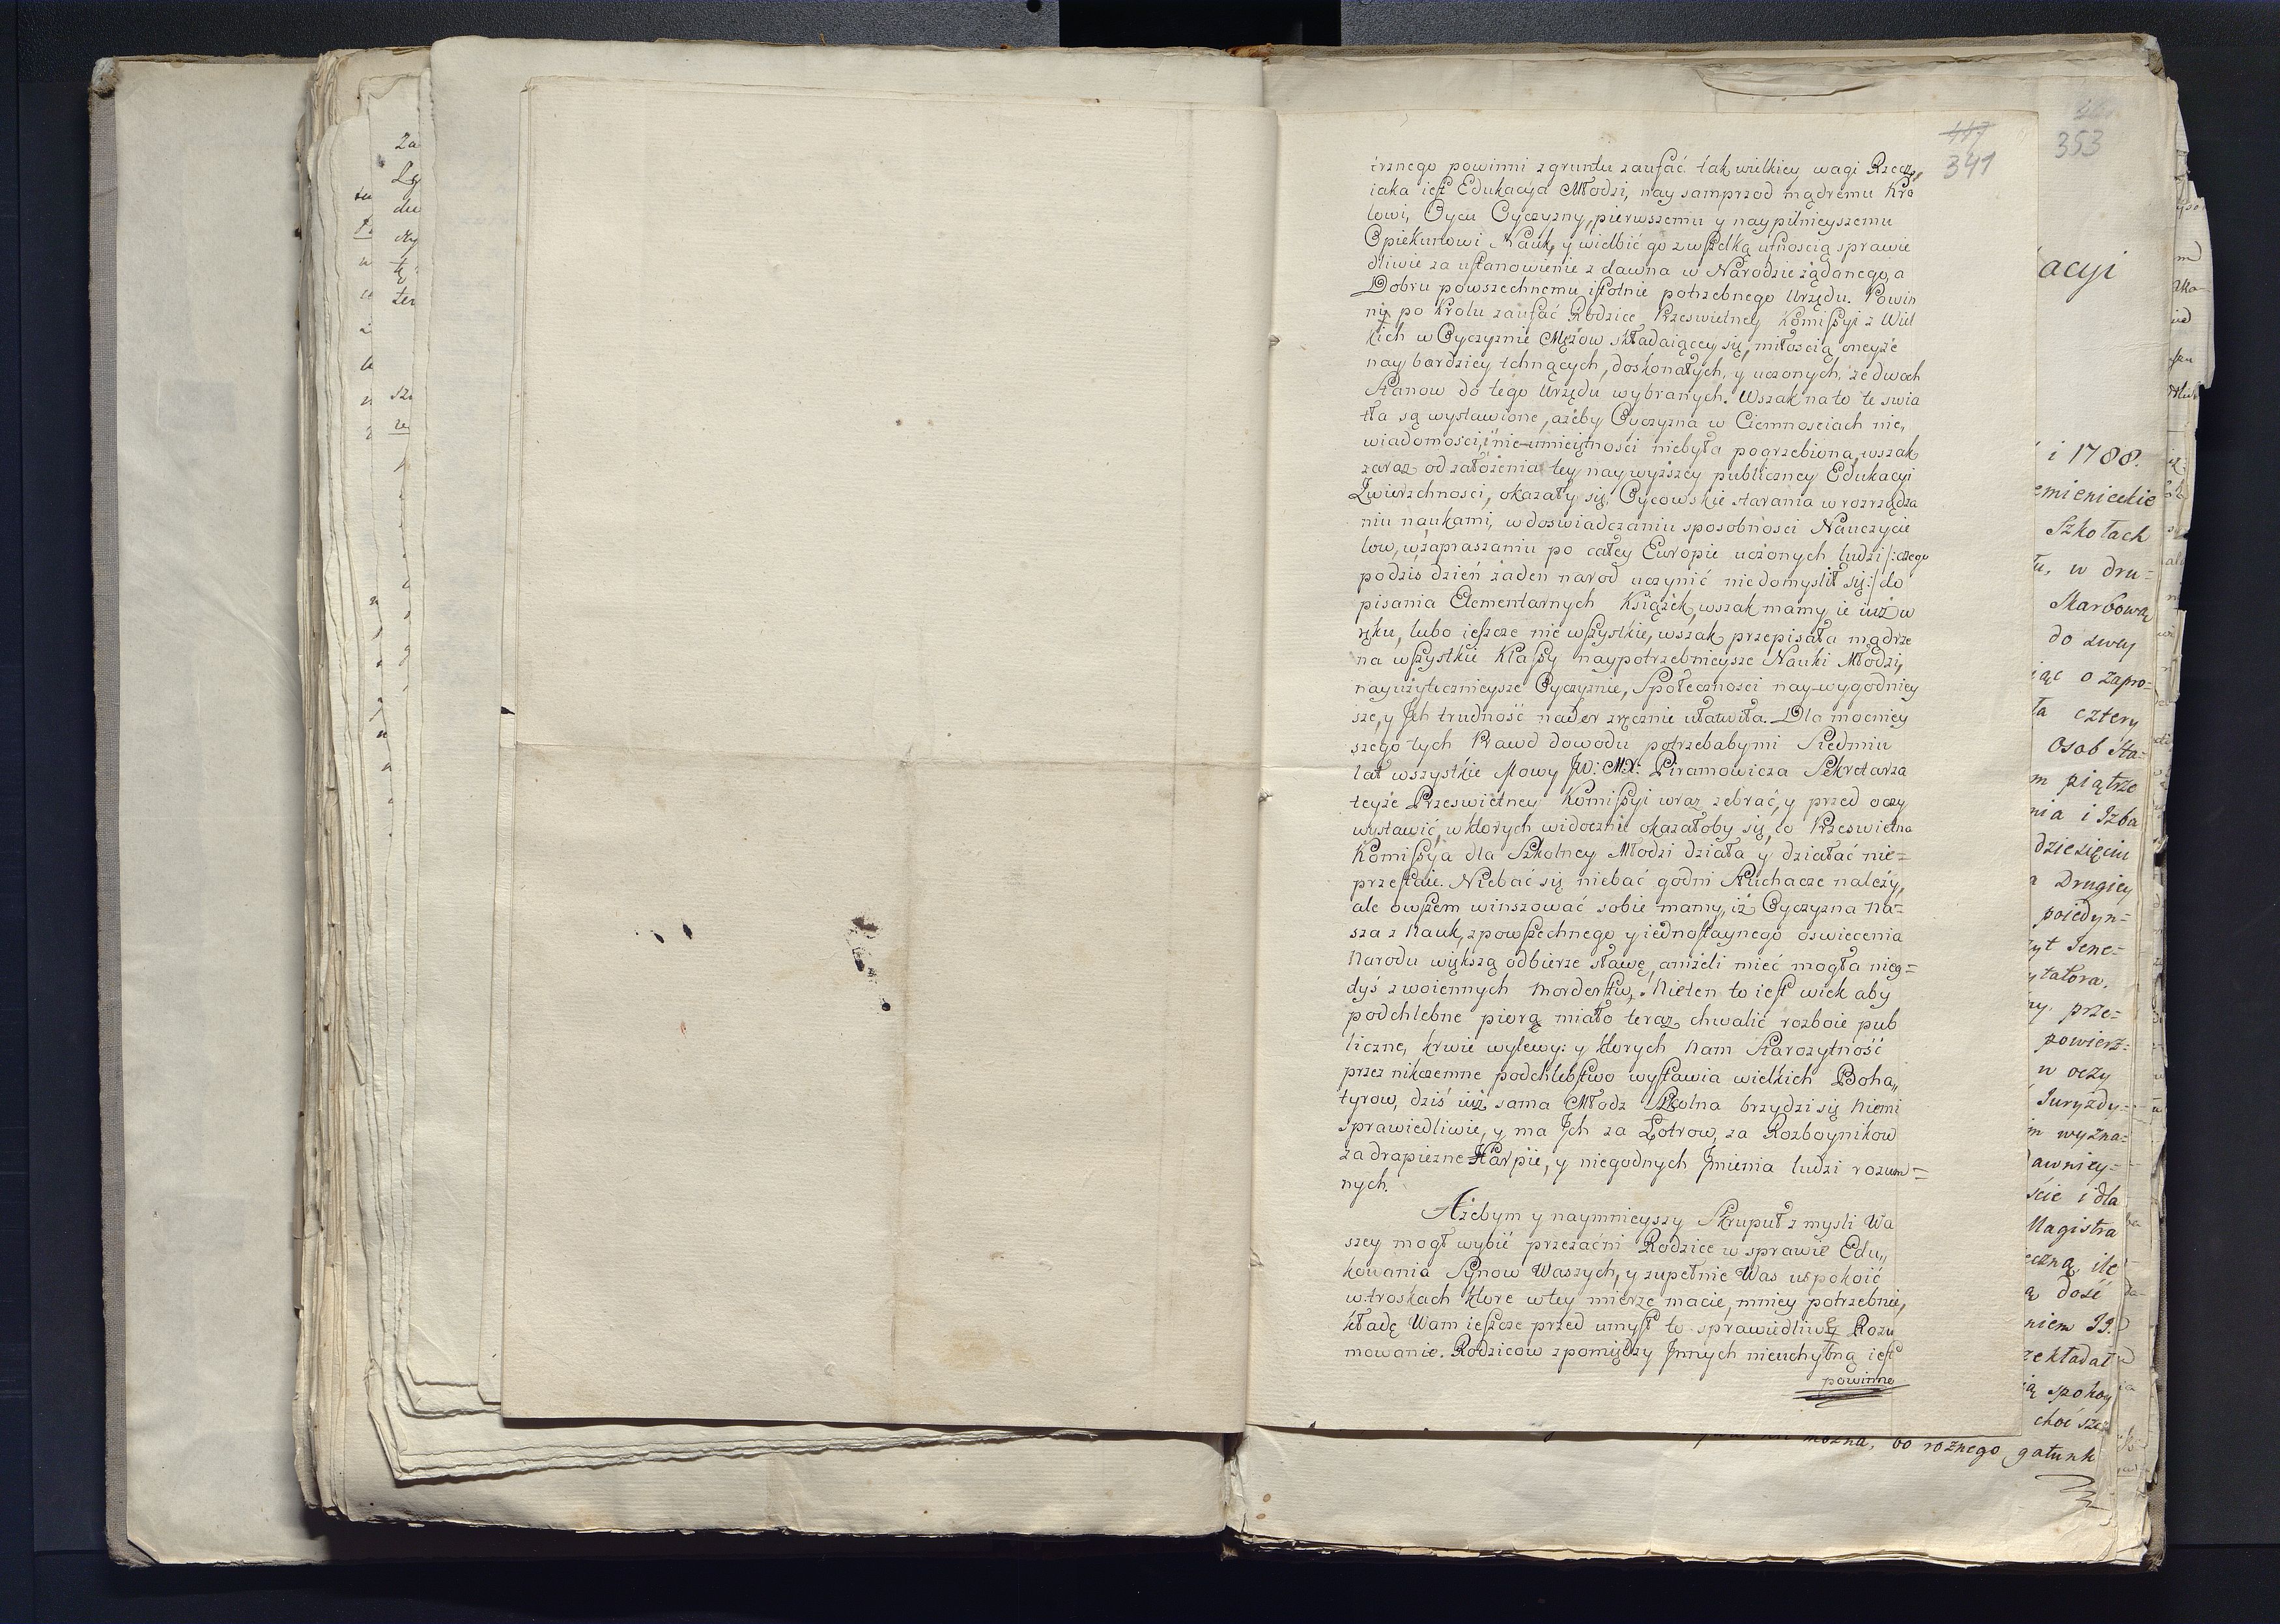 447
341
353
irznego powinni zgruntu zaufać tak wielkiey wagi Rzeczy,
iaka iest Edukacyja Młodzi, nay samprzod mądremu Kro
lowi, Oycu Oyczyzny, pierwszemu y naypilnieyszemu
Opiekunowi Nauk, y wielbić go zwszelką ufnoscią sprawie
dliwie za ustanowienie z dawna w Narodzie żądanego, a
Dobru powszechnemu istotnie potrzebnego Urzędu. Powin
ni po Krolu zaufać Rodzice Przeswietney Komissyi z Wiel
kich w Oyczyznie Mężow składaiącey się, miłoscią oneyże
nay bardziey tchnących, doskonałych, y uczonych, ze dwoch
Stanow do tego Urzędu wybranych. Wszak na to te swia
tła są wystawione, ażeby Oyczyzna w Ciemnosciach nie,
wiadomosci, i nie umieiętnosci niebyła pogrzebiona, wszak
zaraz od założenia tey naywyższey publiczney Edukacyi
Zwierzchnosci, okazały się Oycowskie starania w rozrządza
niu naukami, w doswiadczaniu sposobnosci Nauczycie
low, w zapraszaniu po całey Europie uczonych ludzi /:czego
podzis dzień żaden narod uczynić niedomyslił się:/ do
pisania Elementarnych Książek, wszak mamy ie iuż w
ręku, lubo ieszcze nie wszystkie, wszak przepisała mądrze
na wszystkie Klassy naypotrzebnieysze Nauki Młodzi,
nayużytecznieysze Oyczyznie, Społecznosci nay-wygodniey
sze, y Ich trudność nader zręcznie ułatwiła. Dla mocniey
szego tych Prawd dowodu potrzebabymi Siedmiu
lat wszystkie Mowy JW: MX: Piramowicza Sekretarza
teyże Przeswietney Komissyi wraz zebrać, y przed oczy
wystawić, w ktorych widocznie okazałoby się, co Przeswietna
Komissyja dla Szkolney Młodzi działa y działać nie=
przestaie. Niebać się niebać godni Słuchacze należy,
ale owszem winszować sobie mamy, iż Oyczyzna Na=
sza z Nauk, zpowszechnego y iednostaynego oswiecenia
Narodu większą odbierze sławę, aniżeli mieć mogła nieg=
dyś z woiennych morderstw. Nieten to iest wiek aby
podchlebne piora miało teraz chwalić rozboie pub
liczne, krwie wylewy: y ktorych Nam Starożytność
przez nikczemne podchlebstwo wystawia wielkich Boha,,
tyrow, dziś iuż sama Młodz Szkolna brzydzi się Niemi
sprawiedliwie, y ma Ich za Łotrow, za Rozboynikow
za drapieżne Harpiie, y niegodnych Imienia ludzi rozum=
nych.
Ażebym y naymnieyszy Skrupuł z mysli Wa
szey mogł wybić przezacni Rodzice w sprawie Edu,,
kowania Synow Waszych, y zupełnie Was uspokoić
w troskach ktore w tey mierze macie, mniey potrzebnie,
kładę Wam ieszcze przed umysł to sprawiedliwe Rozu
mowanie. Rodzicow zpomiędzy Innych nieuchybną iest
powinno
acyi
i 1788.
emienieckie
Szkołach
w dru=
Skarbową
do zwey
o zapro=
cztery
Osob Sta=
piątrze
i Izba
dziesięciu
Drugiey
poiedyn=
Jene=
prze=
powierz=
w oczy
Juryzdy=
wyzna=
i dla
Magistra
ile
dość
niem
spokoy
choć sze
można, bo rożnego gatunk